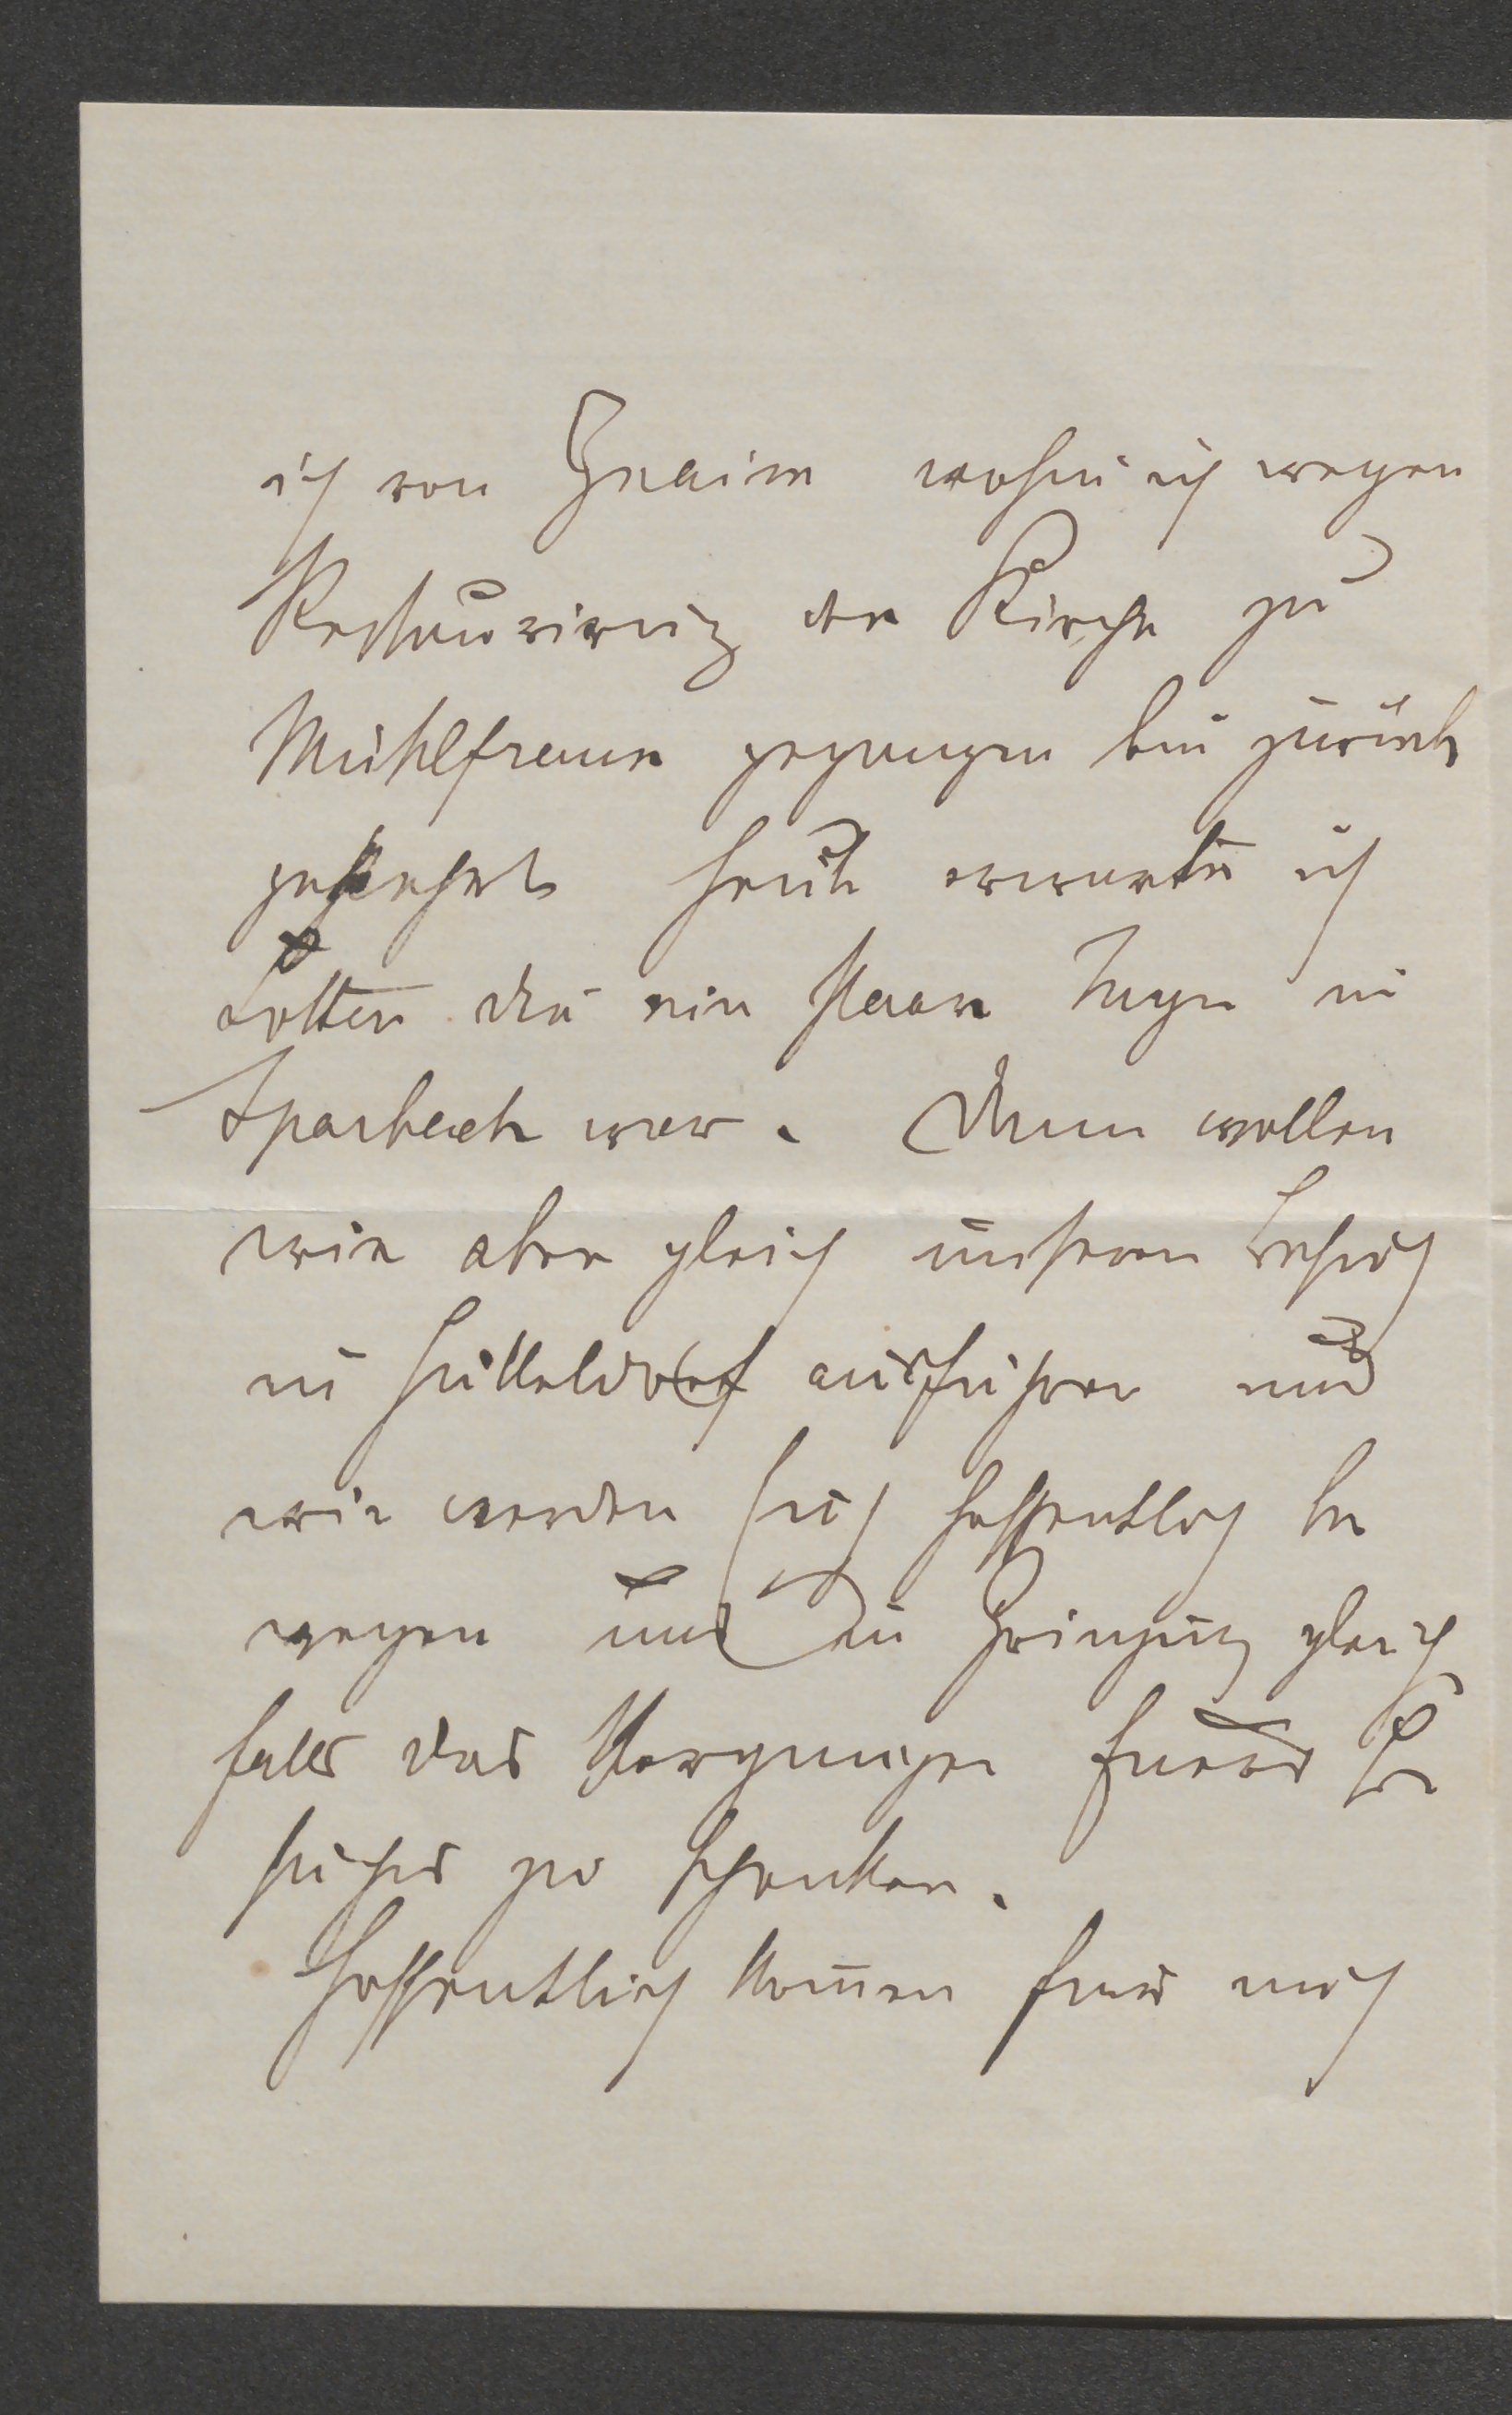 ich von Znaim wohin ich wegen
Restaurirung der Kirche zu
Mühlfraun gegangen bin zurück
gekehrt heute erwarte ich
Lotten die ein Paar Tage in
Sparbach war. Dann wollen
wir aber gleich unseren Besuch
in Hütteldorf ausführen und
wir werden sich hoffentlich be
wegen uns in Grinzing gleich
falls das Vergnügen Ihres Be
suches zu schenken.
Hoffentlich kommen Sie mich